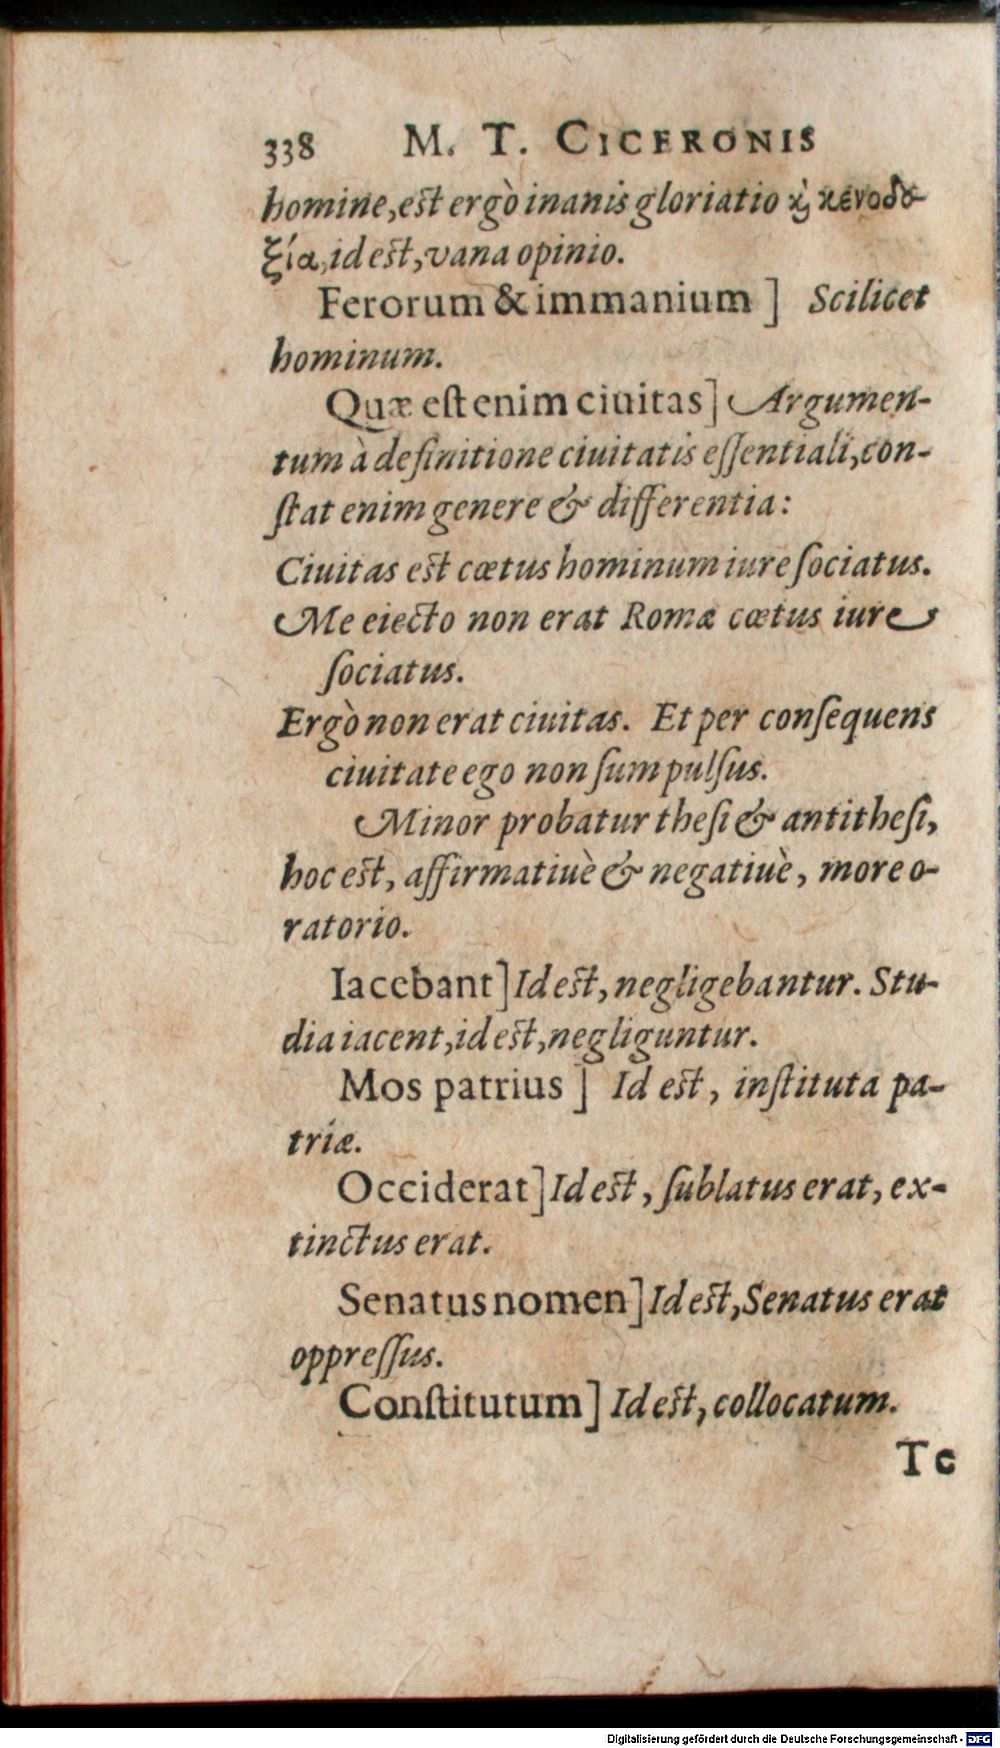 338 M. T. CICERONIS
homine, est ergò inanis gloriatio ϗ̀ κενοδο-
ξία, id est, vana opinio.
Ferorum & immanium ] Scilicet
hominum.
Quæ eſt enim ciuitas] Argumen-
tum à definitione ciuitatis eſſentiali, con-
ſtat enim genere & differentia:
Ciuitas est cœtus hominum iure ſociatus.
Me eiecto non erat Romæ cœtus iure
ſociatus.
Ergò non erat ciuitas. Et per conſequens
ciuitate ego non ſum pulſus.
Minor probatur theſi & antitheſi,
hoc est, affirmatiuè & negatiuè, more o-
ratorio.
Iacebant] Id est, negligebantur. Stu-
dia iacent, id est, negliguntur.
Mos patrius ] Id est, inſtituta pa-
triæ.
Occiderat] Id est, ſublatus erat, ex-
tinctus erat.
Senatus nomen] Id est, Senatus erat
oppreſſus.
Conſtitutum] Id est, collocatum.
Te
Digitalisierung gefördert durch die Deutsche Forschungsgemeinschaft - DFG